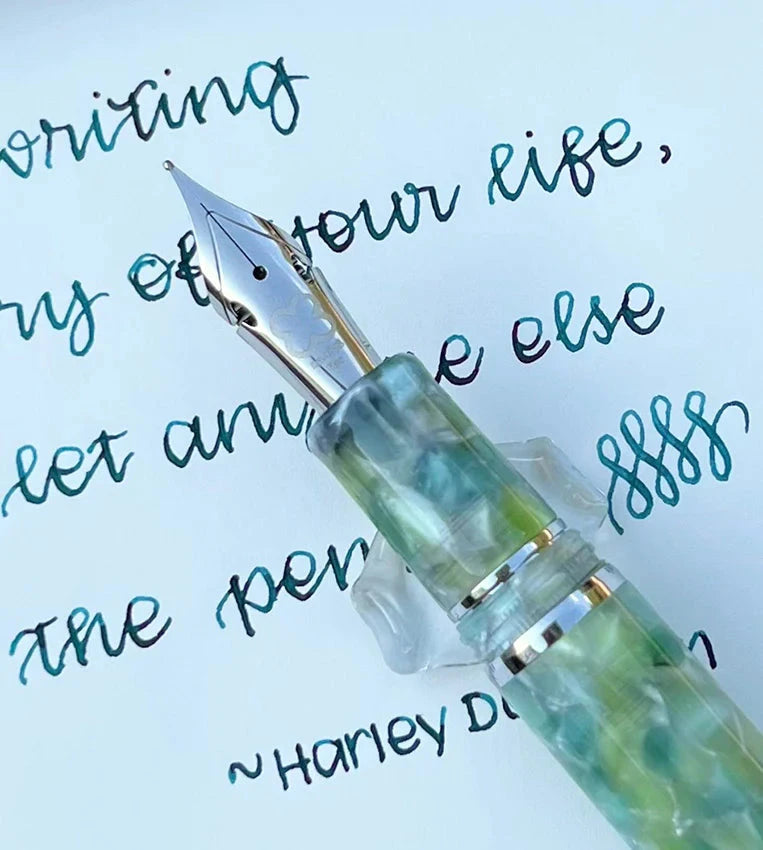 writing
ry of your life,
let an e else
the pen
~Harley D